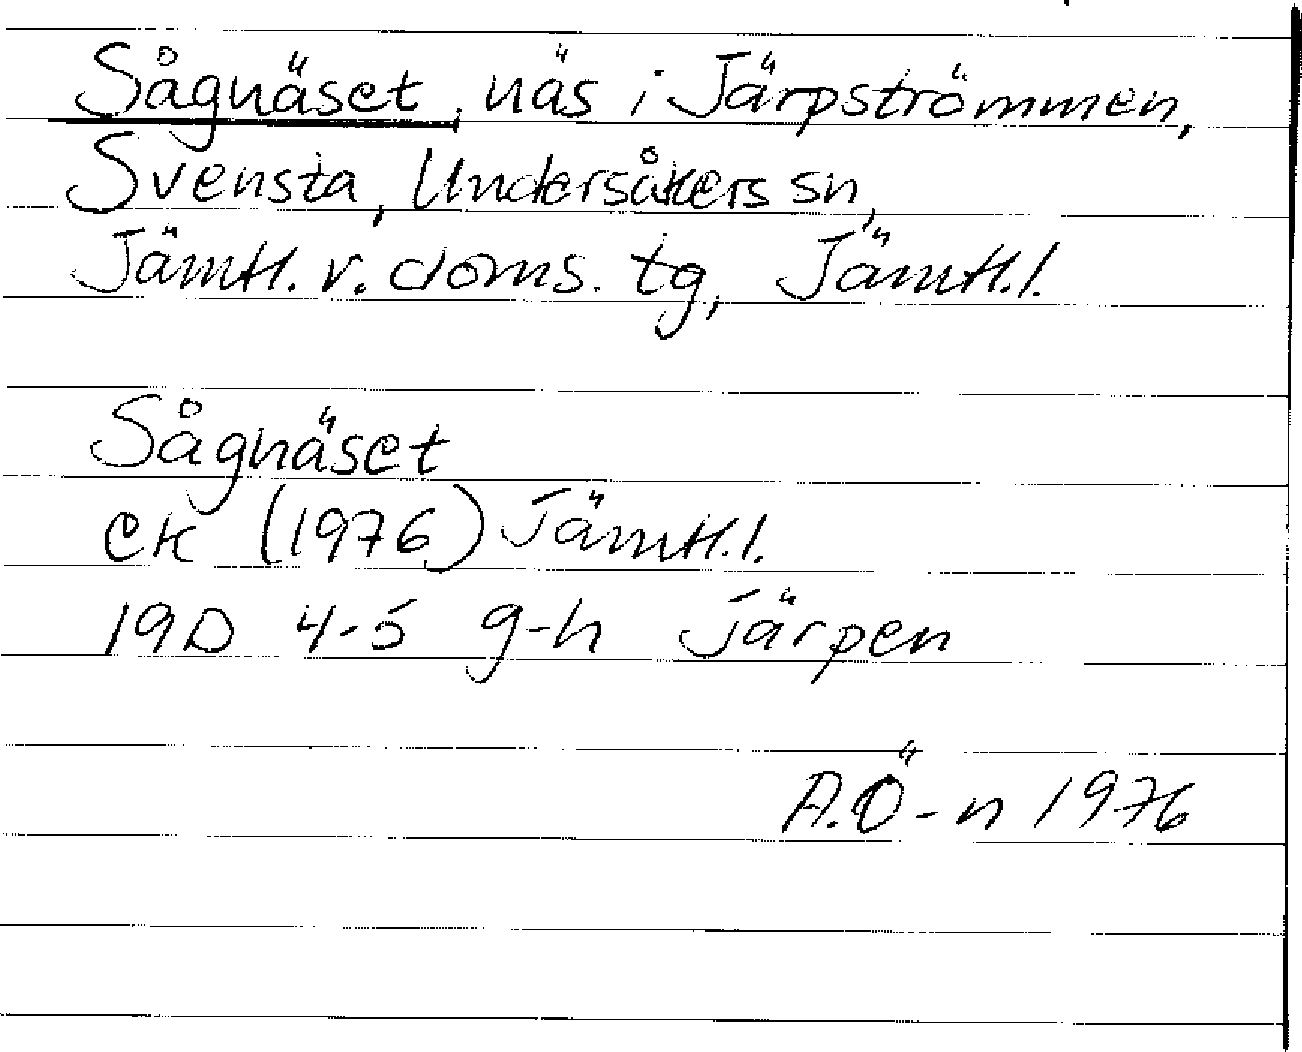 Sågnäset, näs i Järpströmmen,
Svensta, Undersåkers sn,
Jämtl. v. doms. tg, Jämtl.l.
Sågnäset
ek (1976) Jämtl.l.
19D 4-5 g-h Järpen
A.Ö-n 1976